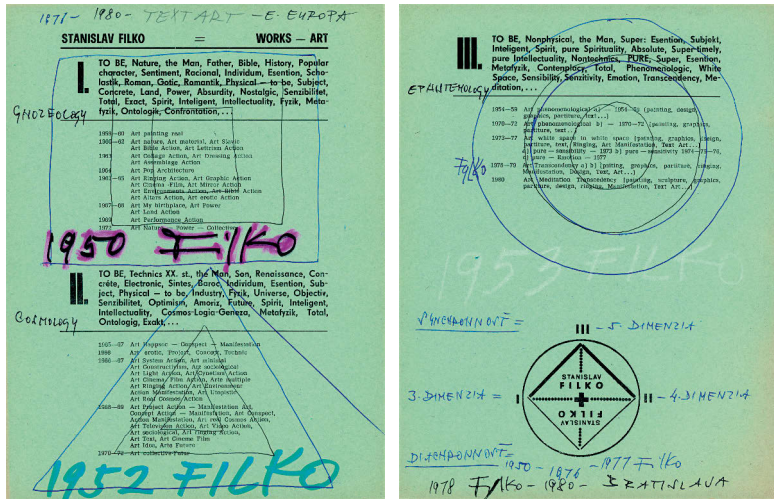 1978 - 1980 - TEXT ART - E. EUROPA
STANISLAV FILKO = WORKS — ART
I. TO BE, Nature, the Man, Father, Bible, History, Popular
character, Sentiment, Racional, Individum, Esention, Scho-
lastik, Roman, Gotic, Romantik, Physical — to be, Subject,
Concrete, Land, Power, Absurdity, Nostalgic, Sensibilitet,
Total, Exact, Spirit, Inteligent, Intellectuality, Fyzik, Meta-
fyzik, Ontologik, Confrontation, . . .
GNOZEOLOGY
1959—60 Art painting real
1960—63 Art nature, Art material, Art Slavic
Art Bible Action, Art Lettrism Action
1963 Art Collage Action, Art Drawing Action
Art Assemblage Action
1964 Art Pop Architecture
1965—67 Art Ringing Action, Art Graphic Action
Art Cinema Film, Art Mirror Action
Art Environments Action, Art Bibli Action
Art Altars Action, Art erotic Action
1967—68 Art My birthplace, Art Power
Art Land Action
1969 Art Performance Action
1972 Art Nature — Power — Collective
1950 FilKO
II. TO BE, Technics XX. st., the Man, Son, Renaissance, Con-
créte, Electronic, Sintes, Baroc, Individum, Esention, Sub-
ject, Physical — to be, Industry, Fyzik, Universe, Objectiv,
Senzibilitet, Optimism, Amoriz, Future, Spirit, Inteligent,
Intellectuality, Cosmos-Logia-Geneza, Metafyzik, Total,
Ontologig, Exakt, . . .
COSMOLOGY
1965—67 Art Happsoc — Concpect — Manifestation
1966 Art erotic, Project, Concept, Technic
1966—67 Art System Action, Art minimal
Art Constructivism, Art sociological
Art Light Action, Art Cynetism Action
Art Cinema, Film Action, Arte multiple
Art Ringing Action, Art Environment
Action Manifestation, Art Utopistic
Art Real Cosmos Action
1968—69 Art Project Action — Manifestation Art,
Concept Action — Manifestation, Art Conspect,
Action Manifestation, Art real Cosmos Action,
Art Television Action, Art Video Action,
Art sociological, Art Ringing Action,
Art Text, Art Cineme Film
Art Idea, Arte Future
1970—72 Art collective Futur
1952 FILKO
III. TO BE, Nonphysical, the Man, Super: Esention, Subjekt,
Inteligent, Spirit, pure Spirituality, Absolute, Super-timely,
pure Intellectuality, Nontechnics, PURE, Super, Esention,
Metafyzik, Contemplacy, Total, Phenomenologic, White
Space, Sensibility, Senzitivity, Emotion, Transcendency, Me-
ditation, . . .
1954—59 Art phenomenological a) — 1954—59 (painting, design,
graphics, partiture, text...)
1970—72 Art phenomenological b) — 1970—72 (painting, graphics,
partiture, text...)
1973—77 Art white space in white space (painting, graphics, design,
partiture, text, Ringing, Art Manifestation, Text Art...)
a) pure — sensibility — 1973 b) pure — sensitivity 1974—75—76,
c) pure — Emotion — 1977
FilKO
1978—79 Art Transcendency a) b) (painting, graphics, partiture, ringing,
Manifestation, Design, Text, Art...)
1980 Art Meditation Transcendency (painting, sculpture, graphics,
partiture, design, ringing, Manifestation, Text Art...)
1953 FILKO
III - 5. DIMENZIA
STANISLAV
FILKO
3. DIMENZIA = I
II - 4. DIMENZIA
FILKO
STANISLAV
1950 - 1976 - 1977 FilKO
1978 FilKO - 1980 - BRATISLAVA